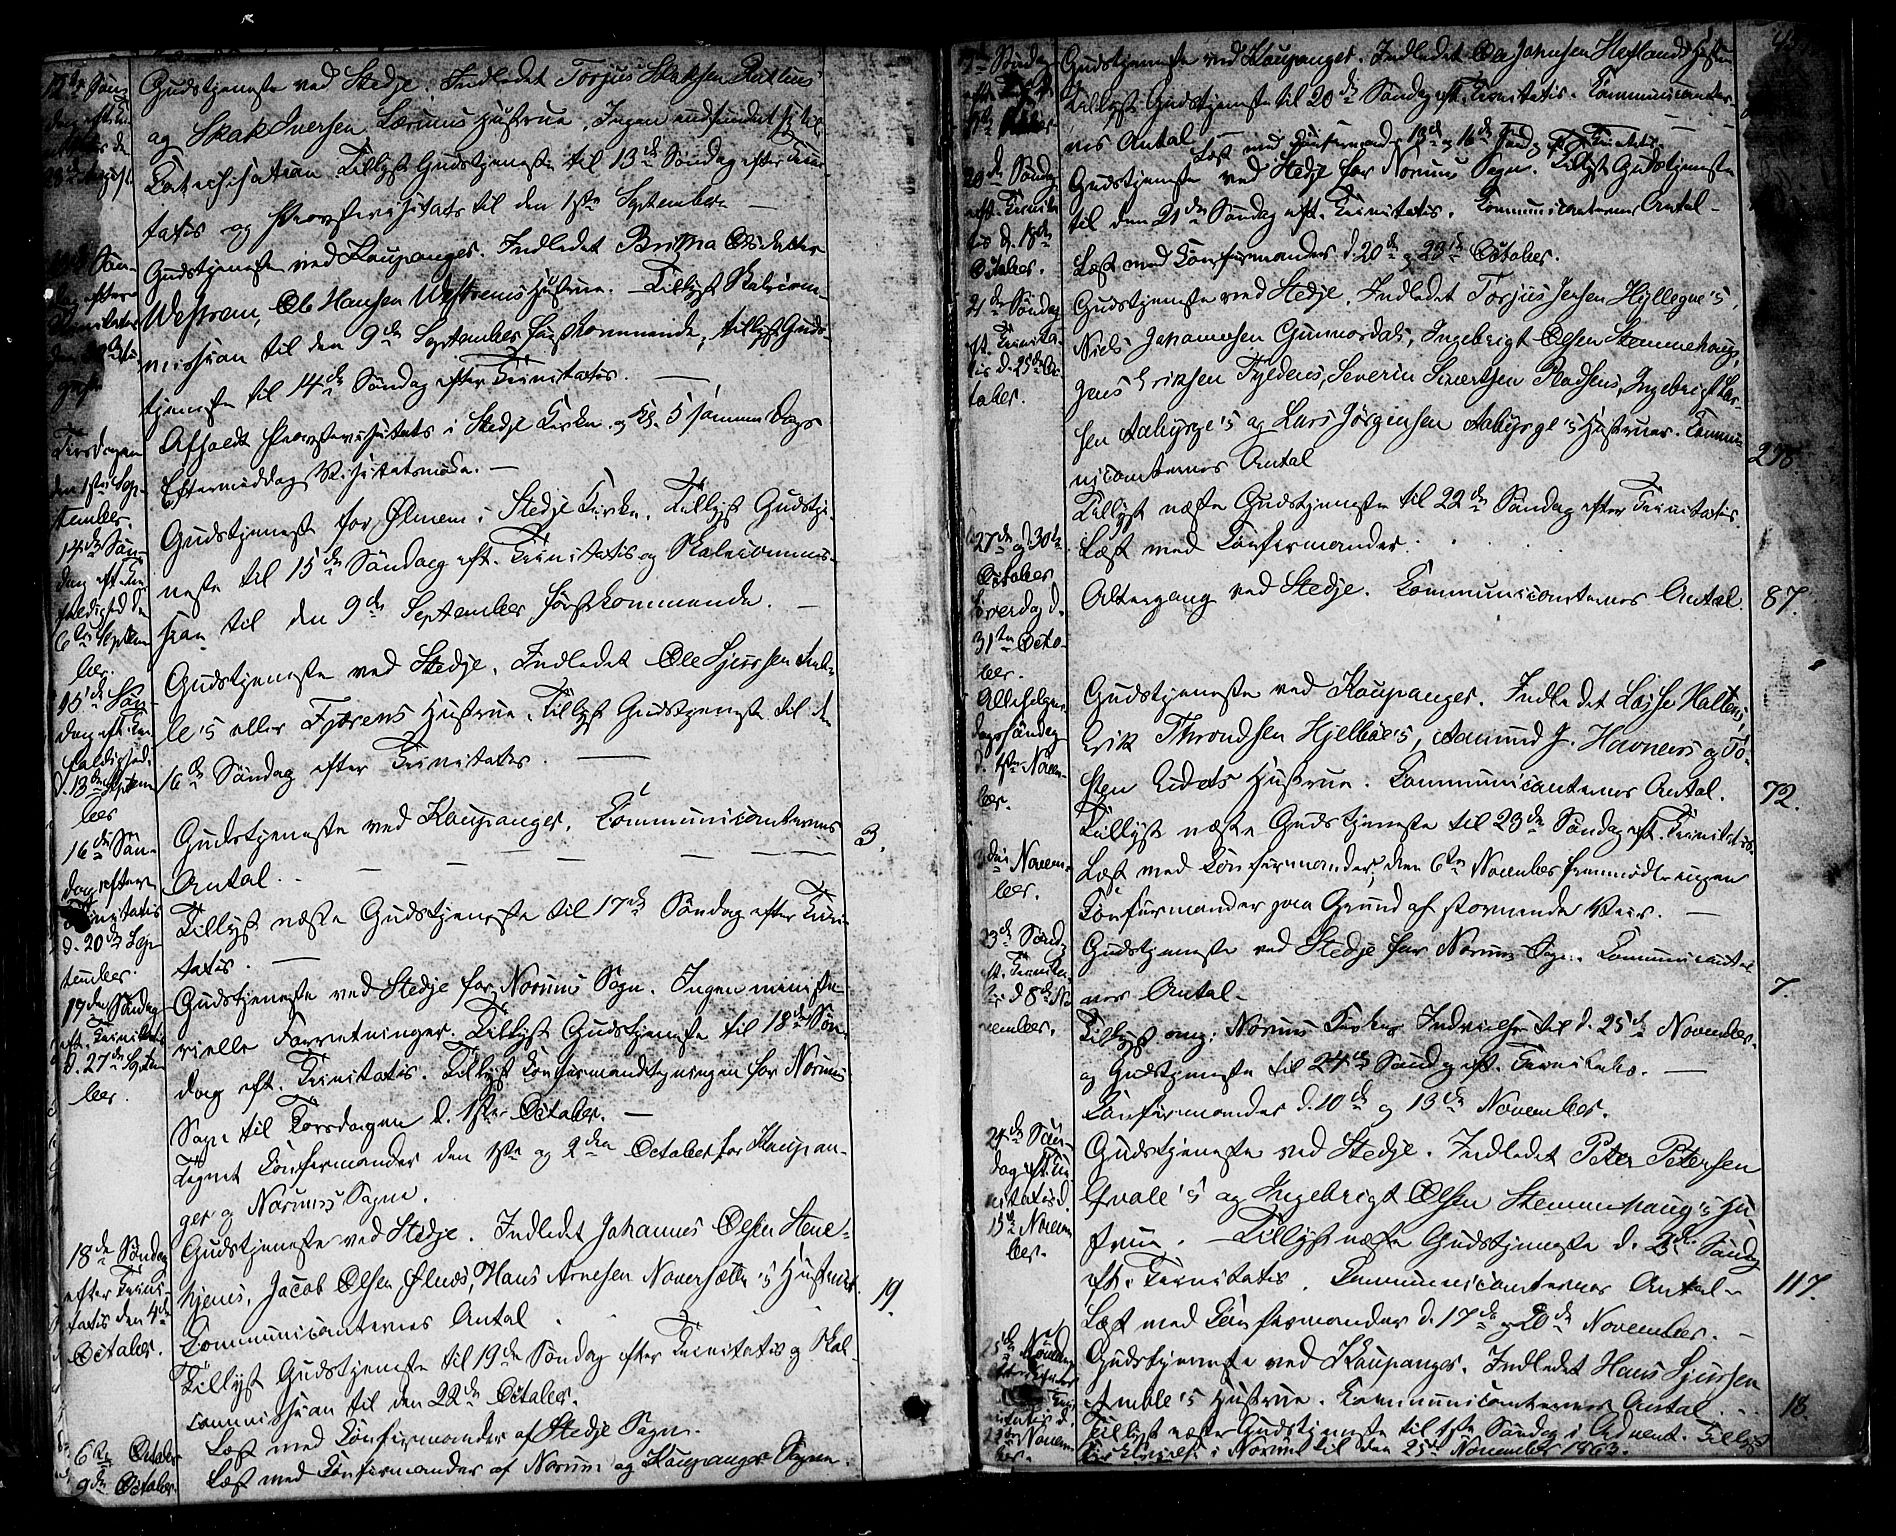 Gudstjeneste ved Stedje. Indledet Torjus Skaksen
og Skak Iversen Lærums Hustrue. Ingen
Catechisation. Tillyst Gudstjeneste til 13de Søndag efter Trini-
tatis og Provstevisitats til den 1ste September.
Gudstjeneste ved Kaupanger. Indledet Britha Olsdatter
Westrem, Ole Hansen Westrems Hustrue. Tillyst Skolecom-
mission til den 9de September førstkommende, tillyst Guds-
tjeneste til 14de Søndag efter Trinitatis.
Tirsdagen
den 1ste Sep-
tember.
Afholdt Provstevisitats i Stedje Kirke og Kl. 5 samme Dags
Eftermiddag Visitatsmøde.
14de Søn-
dag eft. Tre-
foldighed den
6te Septem-
ber.
Gudstjeneste for Ølmem i Stedje Kirke. Tillyst Gudstje-
neste til 15de Søndag eft. Trinitatis og Skolecommis-
sion til den 9de September førstkommende.
15de Søn-
dag eft. Tre-
foldighed
d. 13de Septem-
ber
Gudstjeneste ved Stedje. Indledet Ole Sjursen Amb-
le's eller Fjærens Hustrue. Tillyst Gudstjeneste til den
16de Søndag efter Trinitatis.
16de Søn-
dag efter
Trinitatis
d. 20de Sep-
tember.
Gudstjeneste ved Kaupanger. Communicanternes
Antal. 3.
Tillyst næste Gudstjeneste til 17de Søndag efter Trini-
tatis.
17de Søndag
eft. Trinitatis
d. 27de Septem-
ber.
Gudstjeneste ved Stedje for Norums Sogn. Ingen ministe-
rielle Forretninger. Tillyst Gudstjeneste til 18de Søn-
dag eft. Trinitatis. Tillyst Confirmandtegningen for Norums
Sogn til Torsdagen d. 1ste October.
Tegnet Confirmander den 1ste og 2den October for Kaupan-
ger og Norums Sogne.
18de Søndag
efter Trini-
tatis den 4de
October.
Gudstjeneste ved Stedje. Indledet Johannes Olsen Stene-
hjems, Jacob Olsen Ølnes, Hans Arnesen Navarsætte's Hustruer.
Communicanternes Antal 19.
Tillyst Gudstjeneste til 19de Søndag efter Trinitatis og Skol-
commission til den 22de October.
6te October Læst med Confirmander af Stedje Sogn.
9de October. Læst med Confirmander af Norum og Kaupanger Sogne.
Gudstjeneste ved Kaupanger. Indledet Ole Johnsen
Tillyst Gudstjeneste til 20de Søndag eft. Trinitatis. Communicanter-
nes Antal
Læst med Confirmander 13de og 16de
20de Søndag
eft. Trinita-
tis d. 18de
October.
Gudstjeneste ved Stedje for Norums Sogn. Tillyst Gudstjeneste
til den 21de Søndag eft. Trinitatis. Communicanternes Antal
Læst med Confirmander d. 20de og 23de October.
21de Søndag
eft. Trinita-
tis d. 25de Oc-
tober.
Gudstjeneste ved Stedje. Indledet Torjus Jensen Hyllegne's,
Niels Johannesen Gunvordals, Ingebrigt Olsen Stemmehaug,
Jens Eriksen Fyldens, Severin Sivertsen Pladsens, Ingebrigt Lar-
sen Aabyrge's og Lars Jørgensen Aabyrge's Hustruer. Commu-
nicanternes Antal 298.
Tillyst næste Gudstjeneste til 22de Søndag efter Trinitatis.
27de og 30te
October
Læst med Confirmander.
Løverdag d.
31te Octo-
ber.
Altergang ved Stedje. Communicanternes Antal 87.
Allehelgens-
dagssøndag
d. 1ste Novem-
ber.
Gudstjeneste ved Kaupanger. Indledet Lasse Haltens,
Erik Throndsen Hjelbøe's, Aamund J. Havnens og To-
sten Eidets Hustrue. Communicanternes Antal. 72.
Tillyst næste Gudstjeneste til 23de Søndag eft. Trinitatis.
3die Novem-
ber.
Læst med Confirmander, den 6te November fremmødte ingen
Confirmander paa Grund af stormende Veir.
23de Sønd.
eft. Trinita-
tis d 8de No-
vember.
Gudstjeneste ved Stedje for Norums Sogn. Communicanter-
nes Antal 7.
Tillyst ang: Norums Kirkes Indvielse til d. 25de November
og Gudstjeneste til 24de Søndag eft. Trinitatis.
Confirmander d. 10de og 13de November.
24de Søn-
dag eft. Tri-
nitatis d.
15de Novem-
ber.
Gudstjeneste ved Stedje. Indledet Peter Petersen
Qvale's og Ingebrigt Olsen Stemmehaug's Hu-
strue. Tillyst næste Gudstjeneste d. 25de Søndag
eft. Trinitatis. Communicanternes Antal 117.
Læst med Confirmander d. 17de og 20de November.
25de Søndag
Gudstjeneste ved Kaupanger. Indledet Hans Sjursen
Amble's Hustrue. Communicanternes Antal 18.
Tillyst næste Gudstjeneste til 1ste Søndag i Advent. Tillyst
Kirkevielse i Norum til den 25de November 1863.